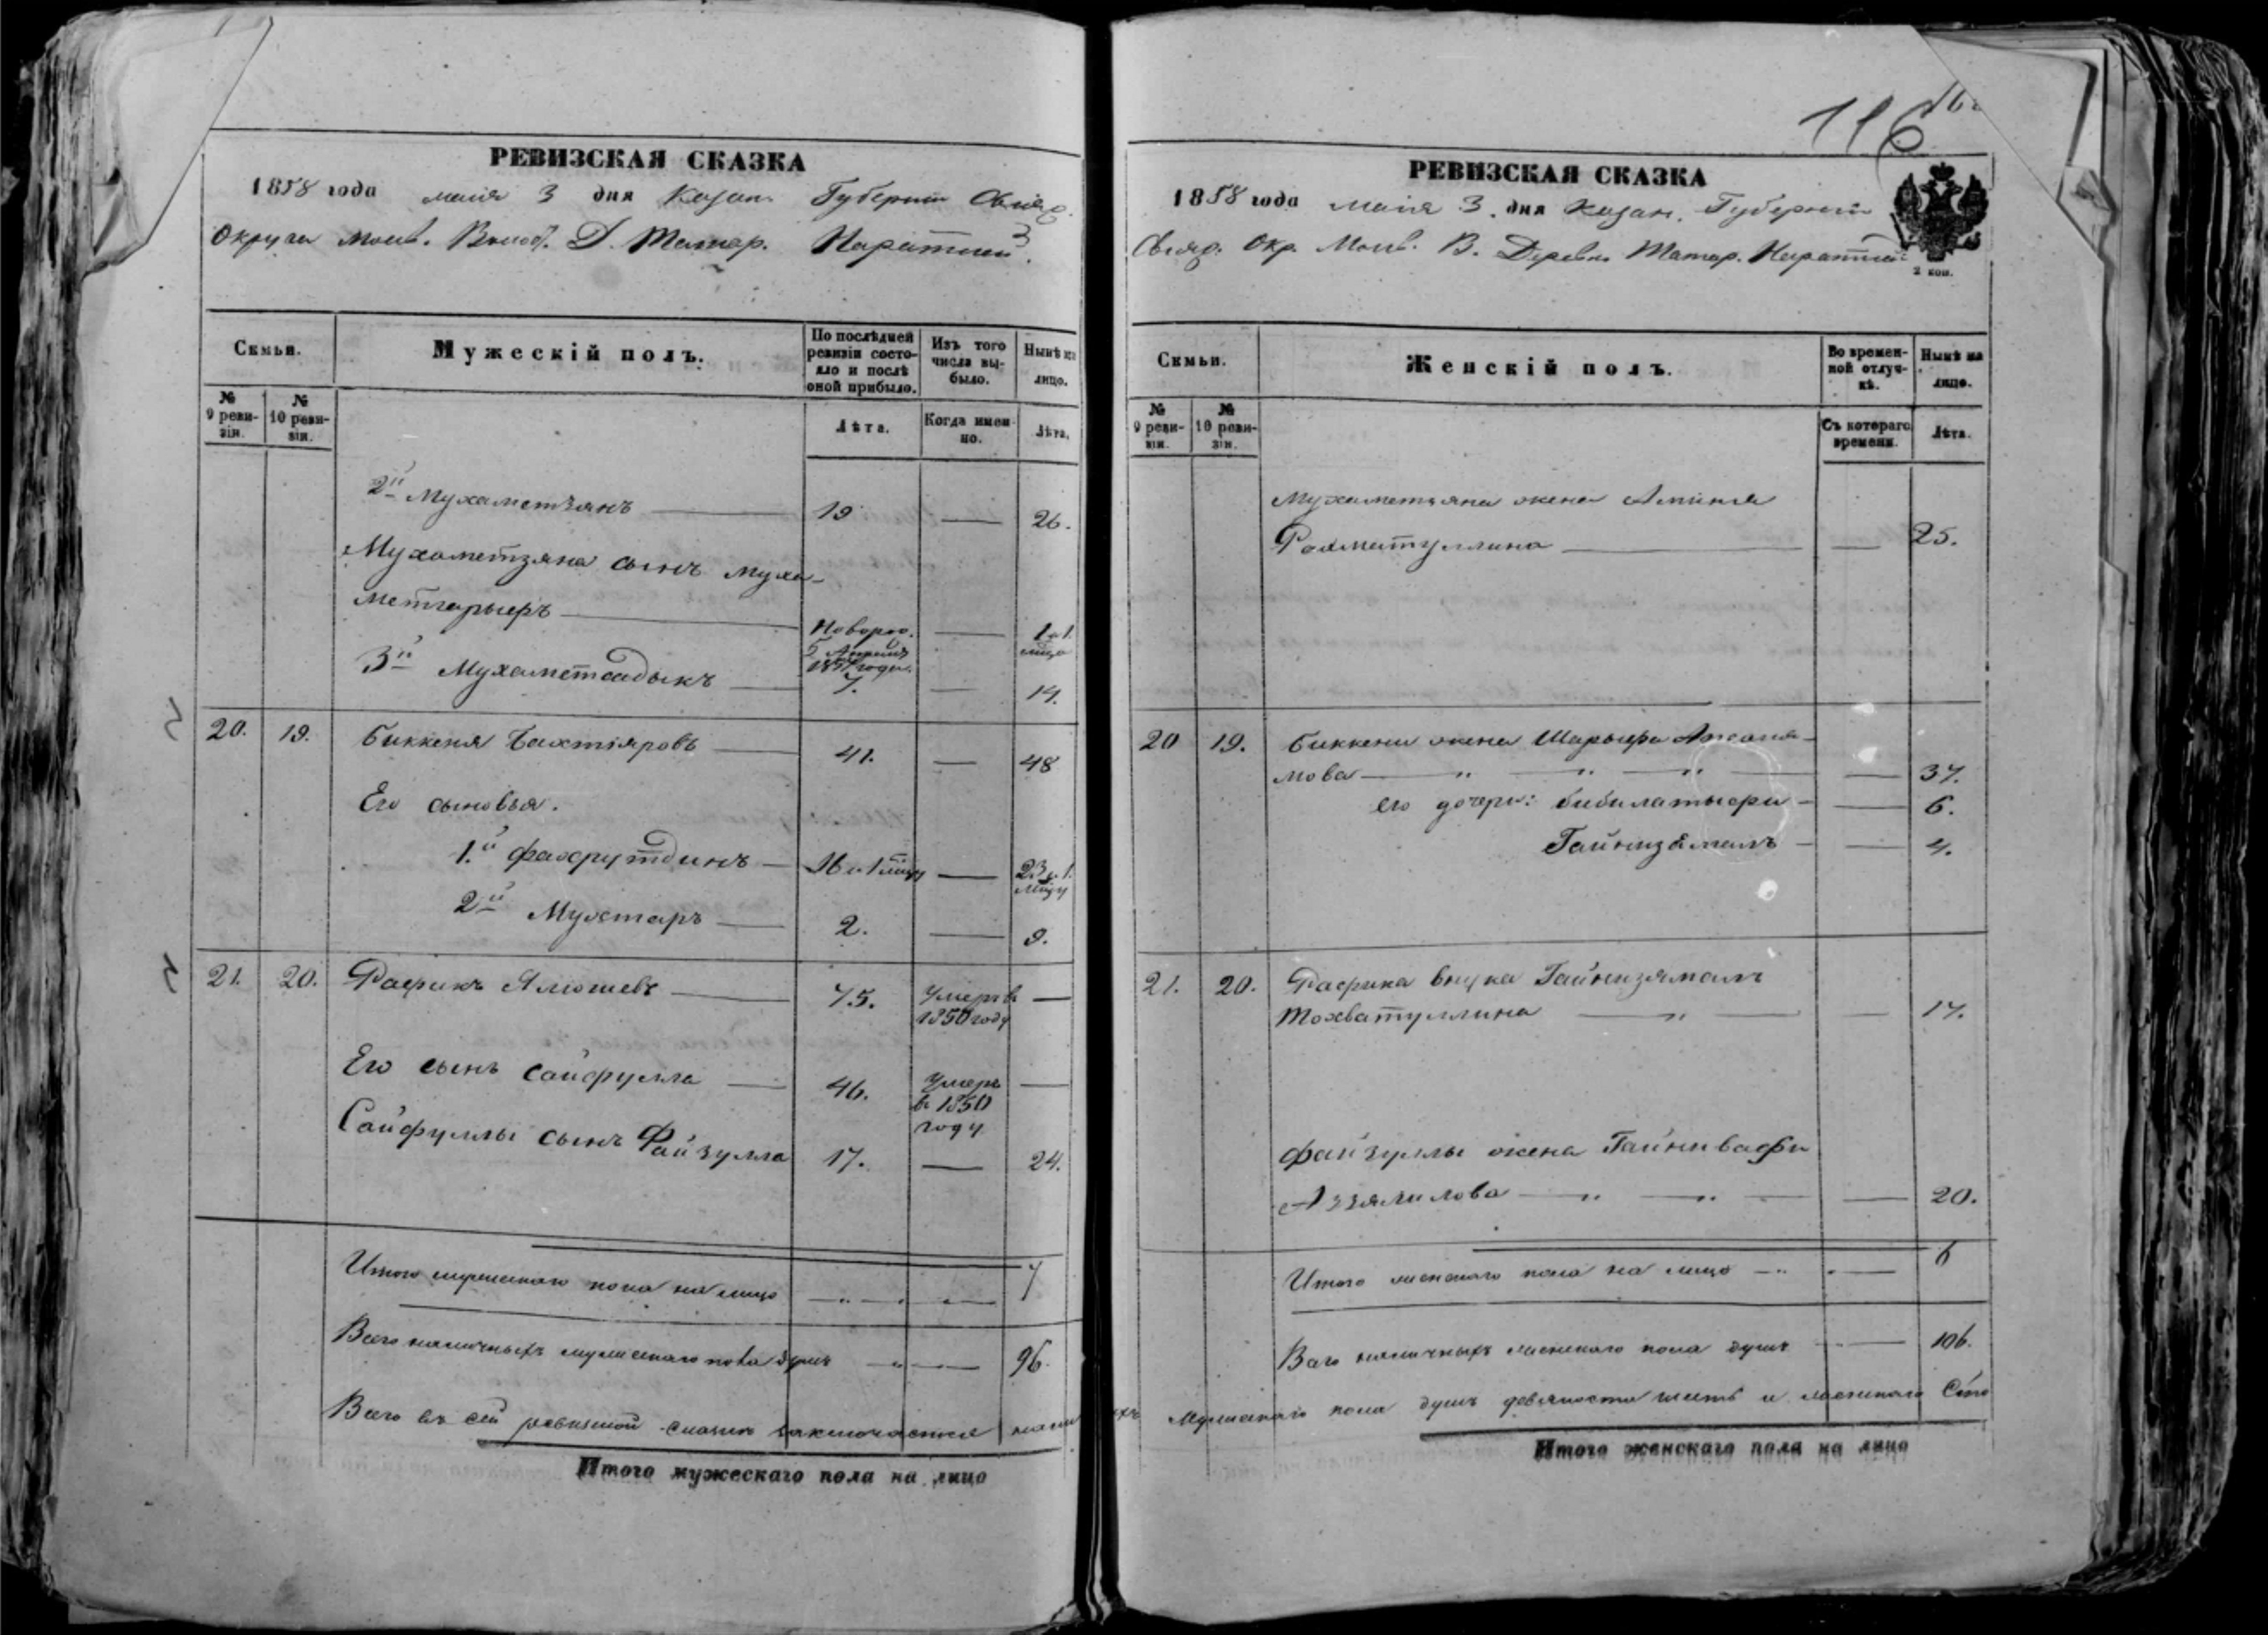 116
РЕВИЗСКАЯ СКАЗКА
1858 года маія 3 дня Казан. Губерніи Свіяж.
Округа Моив. Волост. Д. Татар. Наратлей.
Семьи.
Мужескій полъ.
По послѣдней ревизіи состояло и послѣ оной прибыло.
Изъ того числа выбыло.
Нынѣ на лицо.
№ 9 ревизіи.
№ 10 ревизіи.
Лѣта.
Когда именно.
Лѣта.
2й Мухаметзянъ 19 — 26.
Мухаметзяна сынъ Муха-
метгарыфъ Новорож. 5 Апреля 1857 года. — 1 и 1 мѣсо
3й Мухаметсадыкъ 7. — 14.
20. 19. Биккеня Бахтіяровъ 41. — 48
Его сыновья.
1.й Фахрутдинъ 16 и 1 мѣсу — 23 и 1 мѣсу
2й Мухтаръ 2. — 9.
21. 20. Рафикъ Ялюшевъ 75. умеръ в 1850 году —
Его сынъ Сайфулла 46. умеръ в 1850 году —
Сайфуллы сынъ Файзулла 17. — 24.
Итого мужескаго пола на лицо 7
Всего наличныхъ мужескаго пола душъ 96.
Всего въ сей ревизской сказке заключается налич
Итого мужескаго пола на лицо
РЕВИЗСКАЯ СКАЗКА
1858 года маія 3. дня Казан. Губерніи
Свіяж. Окр. Моив. В. Деревни Татар. Наратлей
2 коп.
Семьи.
Женскій полъ.
Во временной отлучкѣ.
Нынѣ на лицо.
№ 9 ревизіи.
№ 10 ревизіи.
Съ котораго времени.
Лѣта.
Мухаметзяна жена Аминя
Рахматуллина — 25.
20 19. Биккени жена Шарыфа
мова — 37.
его дочери: Бибилатыфи — 6.
Гайнизямалъ — 4.
21. 20. Рафика внука Гайнизямалъ
Тохватуллина — 17.
Файзуллы жена Гайнивафи
Аззямилова — 20.
Итого женскаго пола на лицо 6
Всего наличныхъ женскаго пола душъ 106.
ыхъ мужескаго пола душъ девяносто шесть и женскаго Сто
Итого женскаго пола на лицо